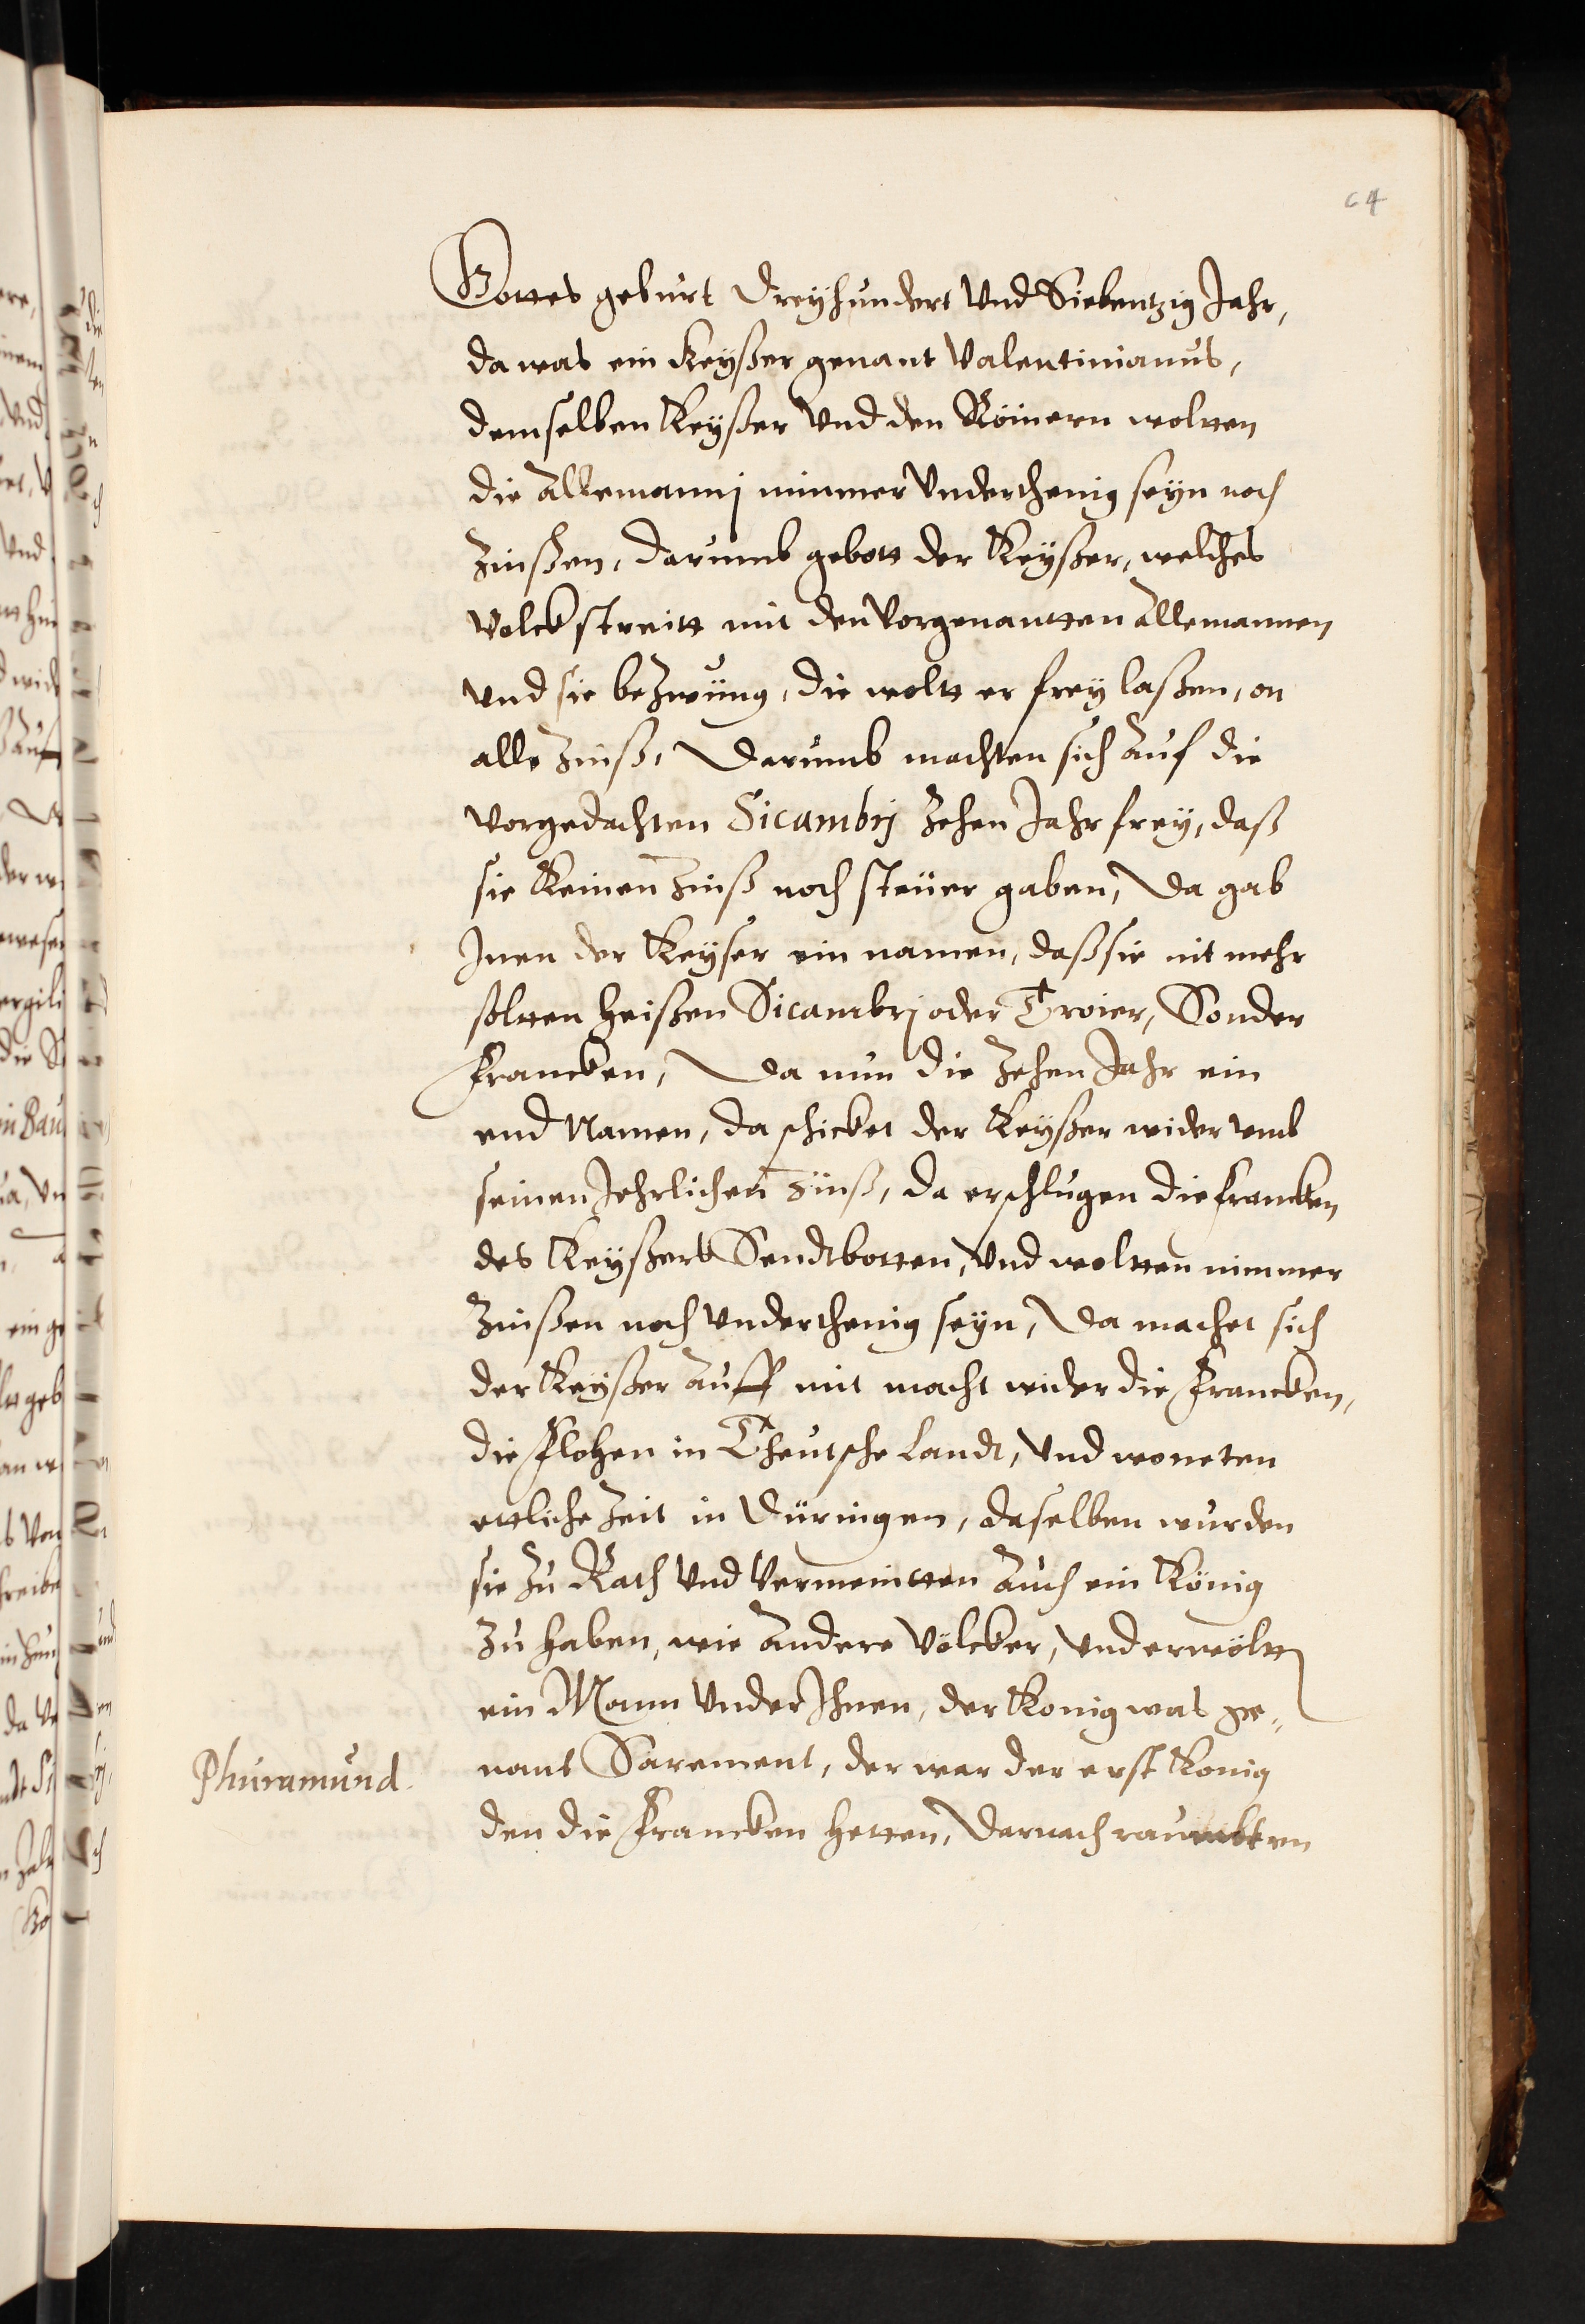 64
Gottes geburt Dreyhundert Vnd Siebentzig Jahr,
da was ein Keyßer genant Valentinianus,
demselben Keyßer Vnd den Römern woltten
die Allemannj nimmer Vnderthenig seyn noch
Zinßen, darumb gebott der Keyßer, welches
Volck streitt mit den Vorgenantten Allemannen
Vnd sie beZwung, die woltt er frey laßen, on
alle Zinß, Darumb machten sich Auf die
Vorgedachten Sicambrj Zehen Jahr frey, daß
sie Keinen Zinß noch steüer gaben, Da gab
Jnen der Keyser ein namen, daß sie nit mehr
soltten heißen Sicambrj oder Troier, Sonder
Francken, Da nun die Zehen Jahr ein
end Namen, da schicket der Keyßer wider vmb
seinen Jehrlichen Zinß, da erschlugen die francken
des Keyßers Sendtbotten, Vnd woltten nimmer
Zinßen noch Vnderthenig seyn, Da machet sich
der Keyßer Auff mit macht wider die Francken,
die Flohen in Theutsche Landt, Vnd woneten
ettliche Zeit in Düringen, daselben wurden
sie Zu Rath Vnd Vermeintten Auch ein König
Zu haben, wie Andere Völcker, Vnd erwöltt
ein Mann Vnder Jhnen, der Konig was ge„
nant Sarement, der war der erst Konig
Phuramund.
den die Francken hetten, Darnach raumbten